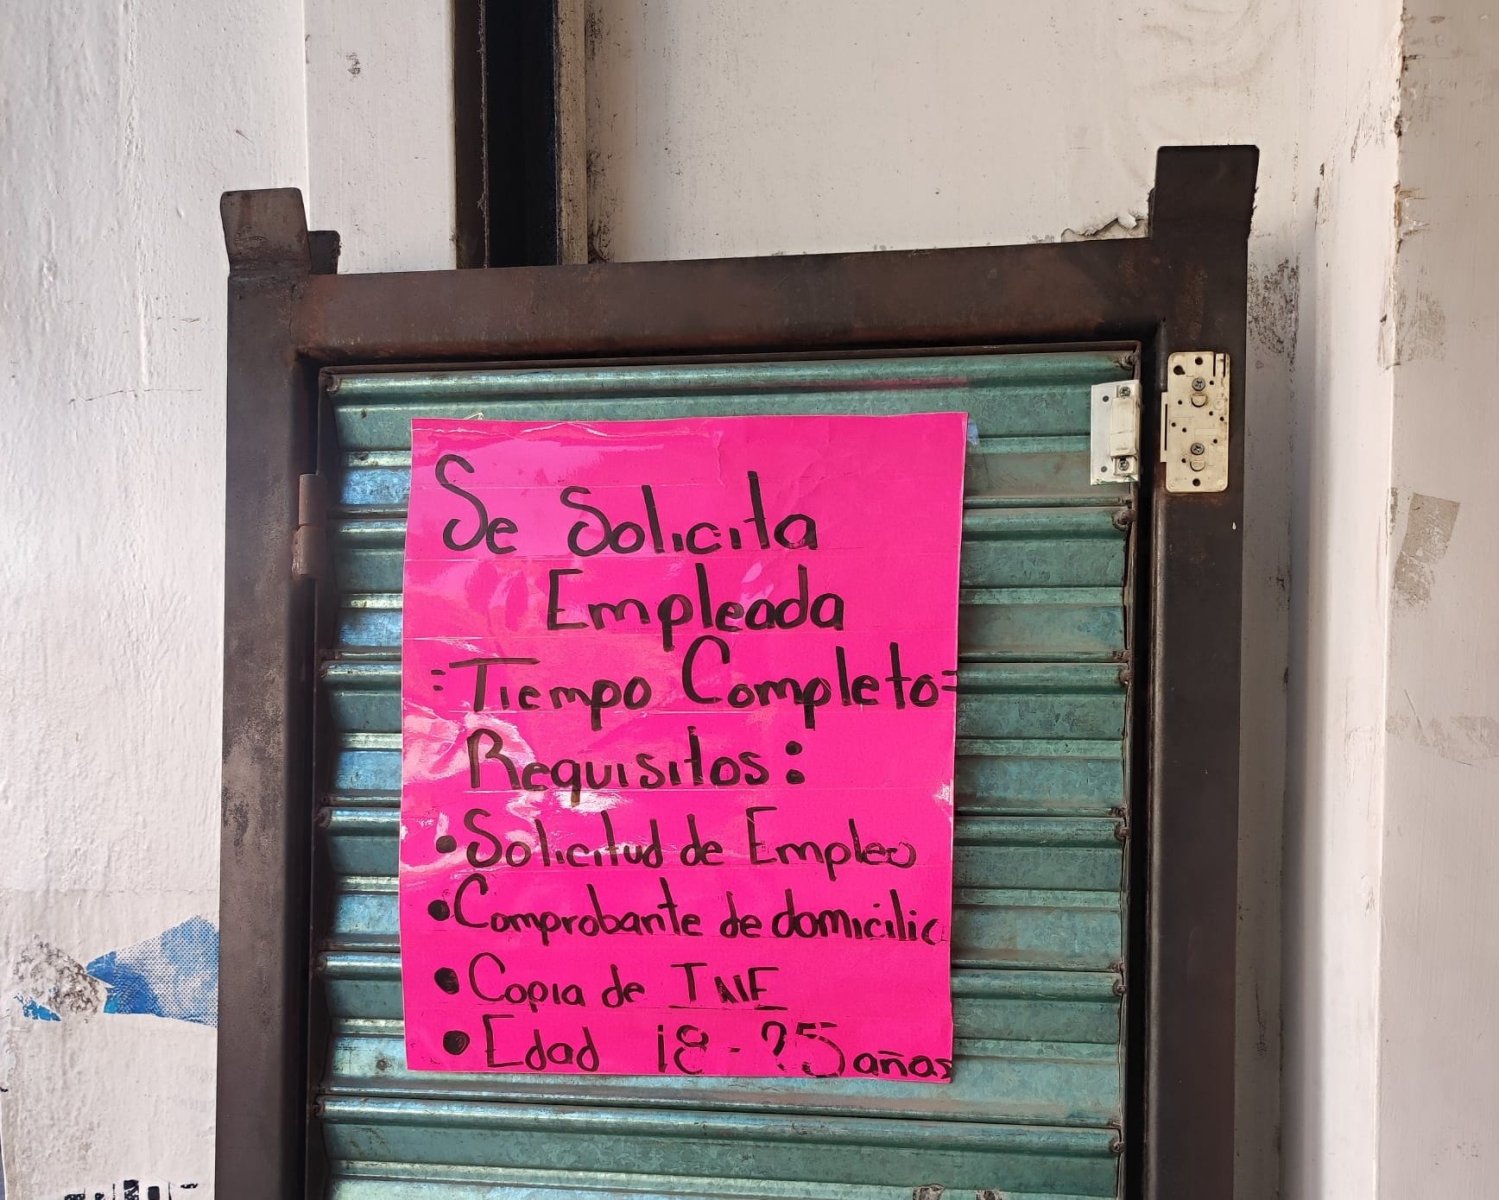 Se Solicita
Empleada
=Tiempo Completo=
Requisitos:
• Solicitud de Empleo
• Comprobante de domicilio
• Copia de INE
• Edad 18 - 25 años